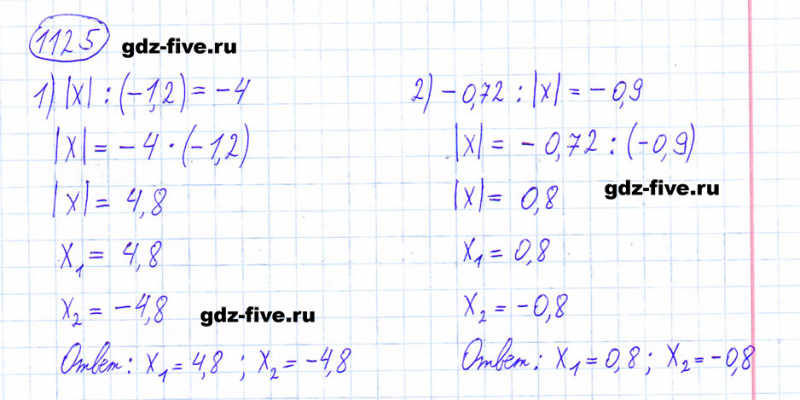 1125 gdz-five.ru
1) |x| : (-1,2) = -4
|x| = -4 · (-1,2)
|x| = 4,8
x₁ = 4,8
x₂ = -4,8
gdz-five.ru
Ответ: x₁ = 4,8 ; x₂ = -4,8
2) -0,72 : |x| = -0,9
|x| = -0,72 : (-0,9)
gdz-five.ru
|x| = 0,8
x₁ = 0,8
x₂ = -0,8
Ответ: x₁ = 0,8 ; x₂ = -0,8